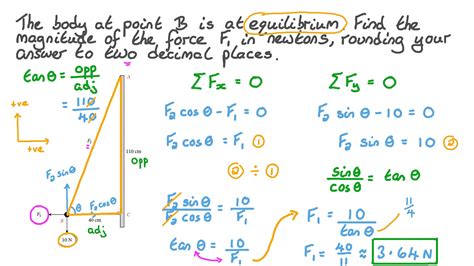 The body at point B is at equilibrium. Find the
magnitude of the force F₁, in newtons, rounding your
answer to two decimal places.
tanθ = opp/adj
= 110/40
+ve
+ve
A
F₂
110 cm
opp
F₂ sinθ
θ
F₂ cosθ
F₁
B
40 cm
C
adj
10 N
ΣFx = 0
F₂ cosθ - F₁ = 0
F₂ cosθ = F₁ ①
② ÷ ①
F₂ sinθ/F₂ cosθ = 10/F₁
tanθ = 10/F₁
ΣFy = 0
F₂ sinθ - 10 = 0
F₂ sinθ = 10 ②
sinθ/cosθ = tanθ
F₁ = 10/tanθ
11/4
F₁ = 40/11 ≈ 3.64 N